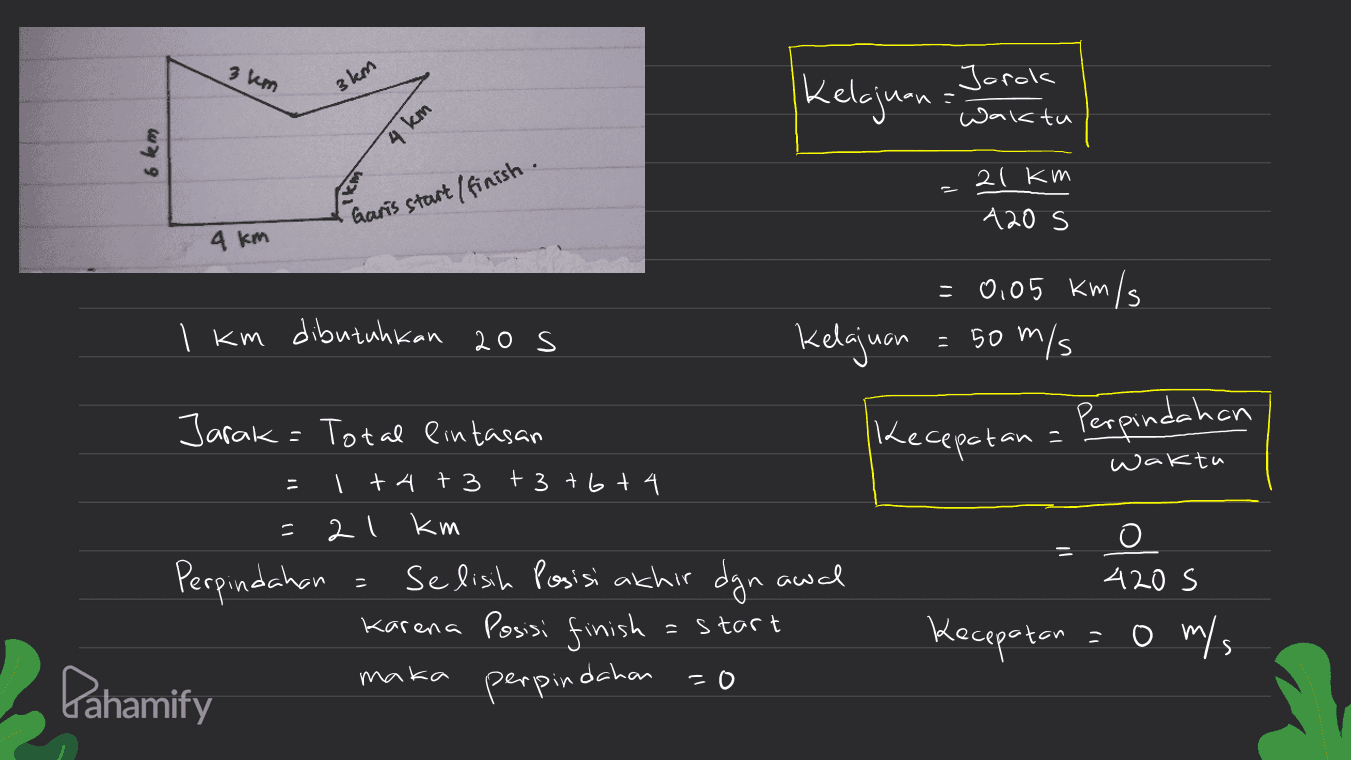 3 km
3 km
4 km
6 km
1 km
Garis start / finish.
4 km
1 km dibutuhkan 20 s
Jarak = Total lintasan
= 1 + 4 + 3 + 3 + 6 + 4
= 21 km
Perpindahan = Selisih Posisi akhir dgn awal
karena Posisi finish = start
maka perpindahan = 0
Kelajuan = Jarak
Waktu
= 21 km
420 s
= 0,05 km/s
Kelajuan = 50 m/s
Kecepatan = Perpindahan
Waktu
= 0
420 s
Kecepatan = 0 m/s
Pahamify